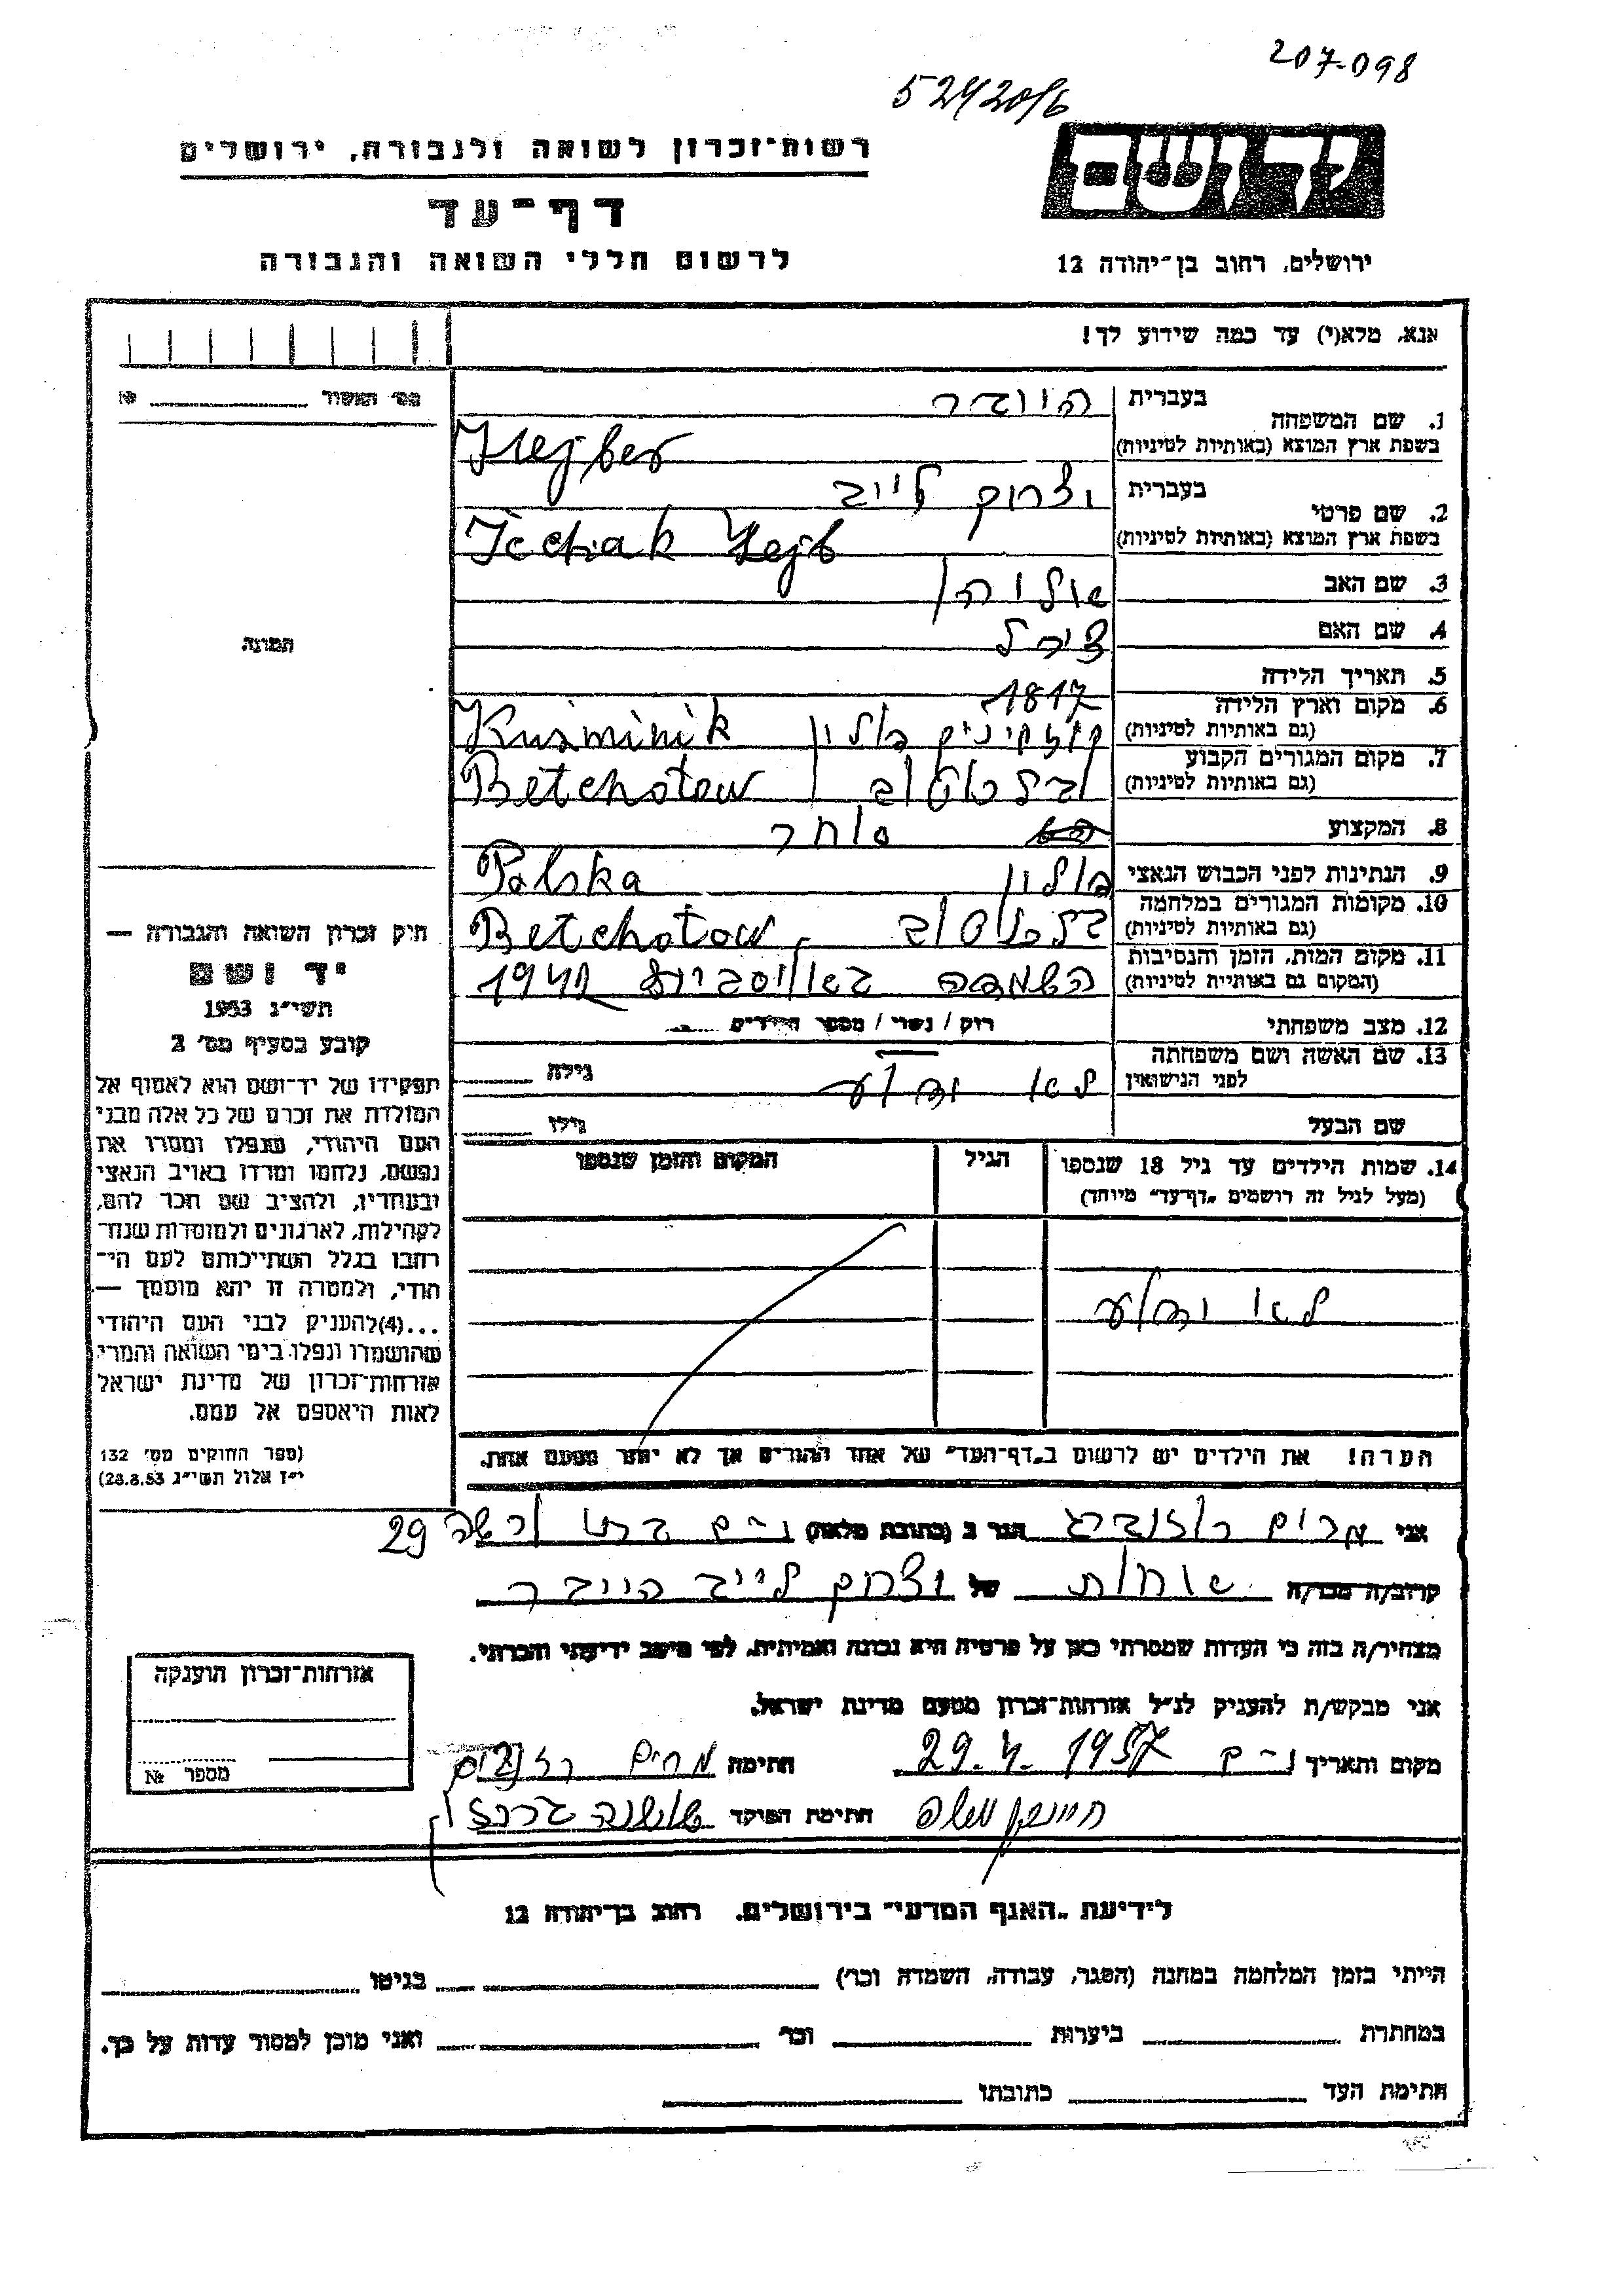 207-098
רשות־זכרון לשואה ולגבורה, ירושלים
דף־עד
לרשום חללי השואה והגבורה
ירושלים, רחוב בן־יהודה 12
אנא, מלא(י) עד כמה שידוע לך!
מס׳ האשור
בעברית
1. שם המשפחה
בשפת ארץ המוצא (באותיות לטיניות) Hejber
בעברית יצחק לייב
2. שם פרטי
בשפת ארץ המוצא (באותיות לטיניות) Icchak Lejb
3. שם האב
4. שם האם צירל
5. תאריך הלידה
6. מקום וארץ הלידה
(גם באותיות לטיניות) פולין
7. מקום המגורים הקבוע
(גם באותיות לטיניות) Betchotow
8. המקצוע סוחר
9. הנתינות לפני הכבוש הנאצי פולין Polska
10. מקומות המגורים במלחמה
(גם באותיות לטיניות) Betchotow
11. מקום המות, הזמן והנסיבות
(המקום גם באותיות לטיניות) השמדה
12. מצב משפחתי רוק / נשוי / מספר הילדים
13. שם האשה ושם משפחתה
לפני הנישואין לא ידוע גילה
שם הבעל גילו
14. שמות הילדים עד גיל 18 שנספו הגיל המקום והזמן שנספו
(מעל לגיל זה רושמים „דף־עד״ מיוחד)
לא ידוע
הערה! את הילדים יש לרשום ב„דף־העד״ של אחד ההורים אך לא יותר מפעם אחת.
התמונה
חוק זכרון השואה והגבורה —
יד ושם
תשי״ג 1953
קובע בסעיף מס׳ 2
תפקידו של יד־ושם הוא לאסוף אל
המולדת את זכרם של כל אלה מבני
העם היהודי, שנפלו ומסרו את
נפשם, נלחמו ומרדו באויב הנאצי
ובעוזריו, ולהציב שם וזכר להם,
לקהילות, לארגונים ולמוסדות שנח־
רבו בגלל השתייכותם לעם הי־
הודי, ולמטרה זו יהא מוסמך —
...(4)להעניק לבני העם היהודי
שהושמדו ונפלו בימי השואה והמרי
אזרחות־זכרון של מדינת ישראל
לאות היאספם אל עמם.
(ספר החוקים מס׳ 132
י״ז אלול תשי״ג 28.8.53)
אני מרים הגר ב (כתובת מלאה) 29
קרוב/ה מכר/ה של יצחק לייב
מצהיר/ה בזה כי העדות שמסרתי כאן על פרטיה היא נכונה ואמיתית, לפי מיטב ידיעתי והכרתי.
אני מבקש/ת להעניק לנ״ל אזרחות־זכרון מטעם מדינת ישראל.
מקום ותאריך 29.4.1957 חתימה מרים
חתימת הפוקד שושנה
אזרחות־זכרון הוענקה
מספר №
לידיעת „האגף המדעי״ בירושלים, רחוב בן־יהודה 12
הייתי בזמן המלחמה במחנה (הסגר, עבודה, השמדה וכו׳) בגיטו
במחתרת ביערות וכו׳ ואני מוכן למסור עדות על כך.
חתימת העד כתובתו